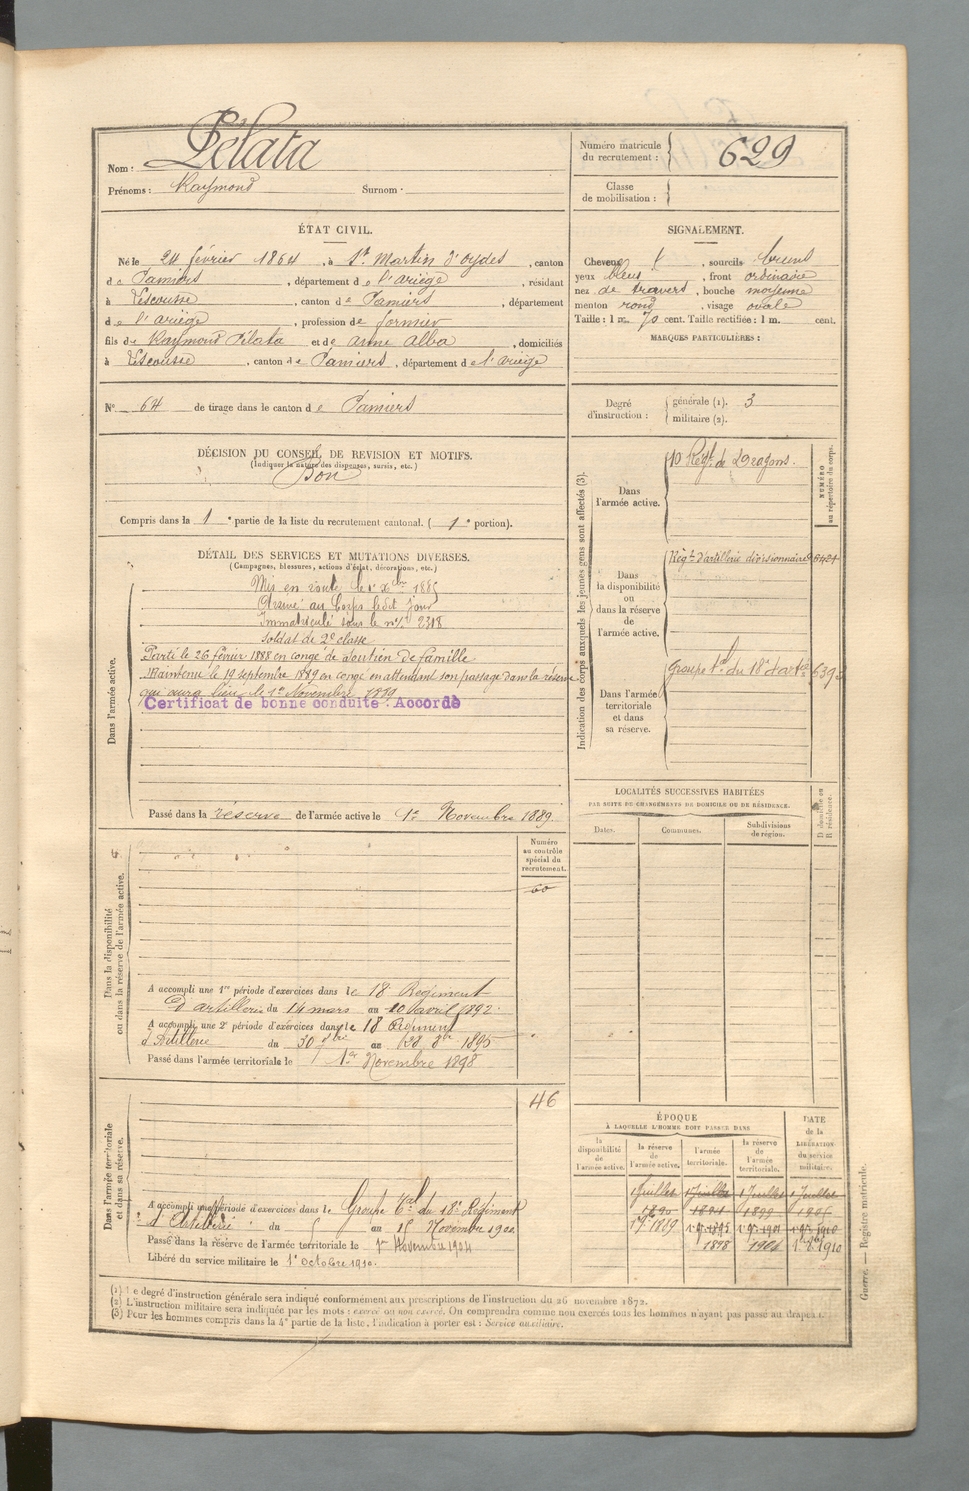 Nom : Pélata
Prénoms : Raymond Surnom :
Numéro matricule du recrutement : 629
Classe de mobilisation :
ÉTAT CIVIL.
Né le 24 février 1864, à St Martin d'oydes, canton
de Pamiers, département de l'ariège, résidant
à Lescousse, canton de Pamiers, département
de l'ariège, profession de fermier
fils de Raymond Pélata et de anne Alba, domiciliés
à Lescousse, canton de Pamiers, département de l'ariège
No 64 de tirage dans le canton de Pamiers
SIGNALEMENT.
Cheveux, sourcils bruns
yeux bleus, front ordinaire
nez de travers, bouche moyenne
menton rond, visage ovale
Taille : 1 m. 70 cent. Taille rectifiée : 1 m. cent.
MARQUES PARTICULIÈRES :
Degré d'instruction : générale (1). 3
militaire (2).
DÉCISION DU CONSEIL DE REVISION ET MOTIFS.
(Indiquer la nature des dispenses, sursis, etc.)
Bon
Compris dans la 1e partie de la liste du recrutement cantonal. (1e portion).
DÉTAIL DES SERVICES ET MUTATIONS DIVERSES.
(Campagnes, blessures, actions d'éclat, décorations, etc.)
Dans l'armée active.
Mis en route le 1r Xbre 1885
Arrivé au Corps ledit jour
Immatriculé sous le no 2318
Soldat de 2e classe
Parti le 26 février 1888 en congé de soutien de famille
Maintenu le 19 septembre 1889 en congé en attendant son passage dans la réserve
qui aura lieu le 1er Novembre 1889
Certificat de bonne conduite : Accordé
Passé dans la réserve de l'armée active le 1er Novembre 1889.
Indication des corps auxquels les jeunes gens sont affectés (3).
NUMÉRO au répertoire du corps.
Dans l'armée active.
10 Régt de Dragons.
Dans la disponibilité ou dans la réserve de l'armée active.
Régt d'artillerie divisionnaire
Dans l'armée territoriale et dans sa réserve.
Groupe tal du 18e d'artie
LOCALITÉS SUCCESSIVES HABITÉES
PAR SUITE DE CHANGEMENTS DE DOMICILE OU DE RÉSIDENCE.
Dates. Communes. Subdivisions de région. D domicile ou R résidence.
Dans la disponibilité ou dans la réserve de l'armée active.
Numéro au contrôle spécial du recrutement.
60
A accompli une 1re période d'exercices dans le 18 Régiment
D'artillerie du 14 mars au 10 avril 1892.
A accompli une 2e période d'exercices dans le 18 Régiment
d'Artillerie du 30 7bre au 8bre 1895
Passé dans l'armée territoriale le 1er Novembre 1898
Dans l'armée territoriale et dans sa réserve.
46
A accompli une période d'exercices dans le Groupe tal du 18e Régiment
d'Artillerie du au 15 Novembre 1900.
Passé dans la réserve de l'armée territoriale le 1er Novembre 1904
Libéré du service militaire le 1er octobre 1910.
ÉPOQUE
À LAQUELLE L'HOMME DOIT PASSER DANS
la disponibilité de l'armée active. la réserve de l'armée active. l'armée territoriale. la réserve de l'armée territoriale.
DATE de la LIBÉRATION du service militaire.
1 Juillet 1 Juillet 1 Juillet 1 Juillet
1890 1899 1905
1889 1895 1901 1910
1898 1904 1910
(1) Le degré d'instruction générale sera indiqué conformément aux prescriptions de l'instruction du 26 novembre 1872.
(2) L'instruction militaire sera indiquée par les mots : exercé ou non exercé. On comprendra comme non exercés tous les hommes n'ayant pas passé au drapeau.
(3) Pour les hommes compris dans la 4e partie de la liste, l'indication à porter est : Service auxiliaire.
Guerre. — Registre matricule.